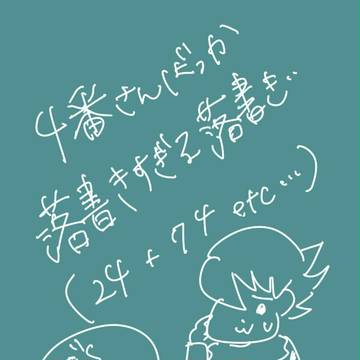 4番さん(だっか)
落書きすぎる落書き…
(24+74 etc…)